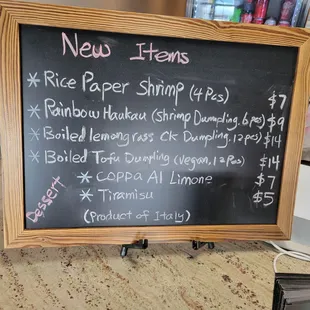 New Items
* Rice Paper Shrimp (4 Pcs) $7
* Rainbow Haukau (Shrimp Dumpling. 6 pcs) $9
* Boiled lemongrass Ck Dumpling. 12 pcs) $14
* Boiled Tofu Dumpling (Vegan, 12 Pcs) $14
Dessert
* Coppa Al Limone $7
* Tiramisu $5
(Product of Italy)